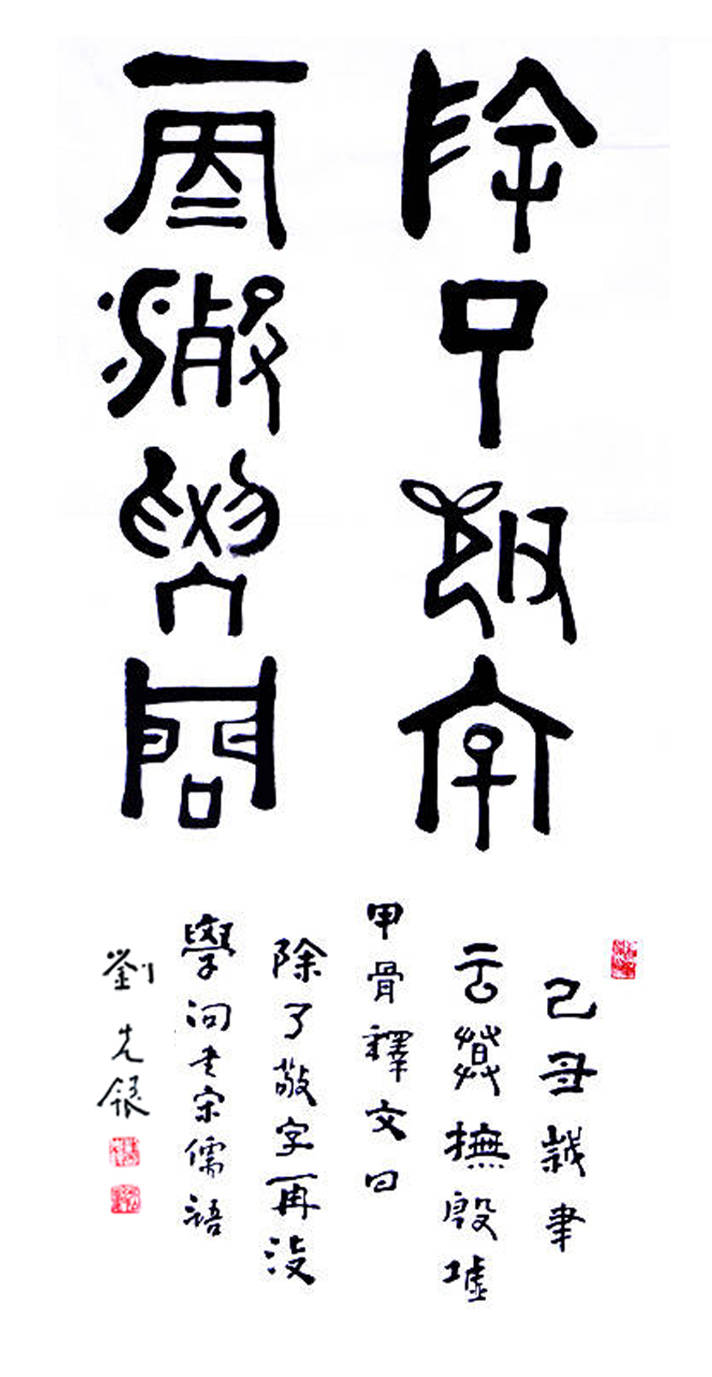 除了敬字
再没學問
己丑歲聿
云莫撫殷墟
甲骨釋文曰
除了敬字再没
學問書宋儒語
劉先銀